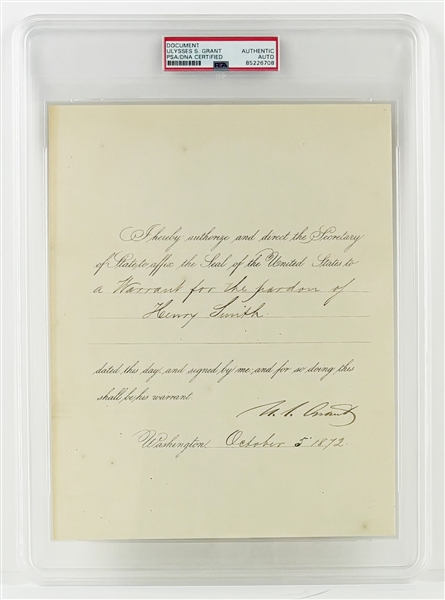 DOCUMENT
ULYSSES S. GRANT
PSA/DNA CERTIFIED
AUTHENTIC
AUTO
85226708
PSA
I hereby authorize and direct the Secretary
of State to affix the Seal of the United States to
a Warrant for the pardon of
Henry Smith.
dated this day, and signed by me, and for so doing this
shall be his warrant
U. S. Grant
Washington October 5 1872.